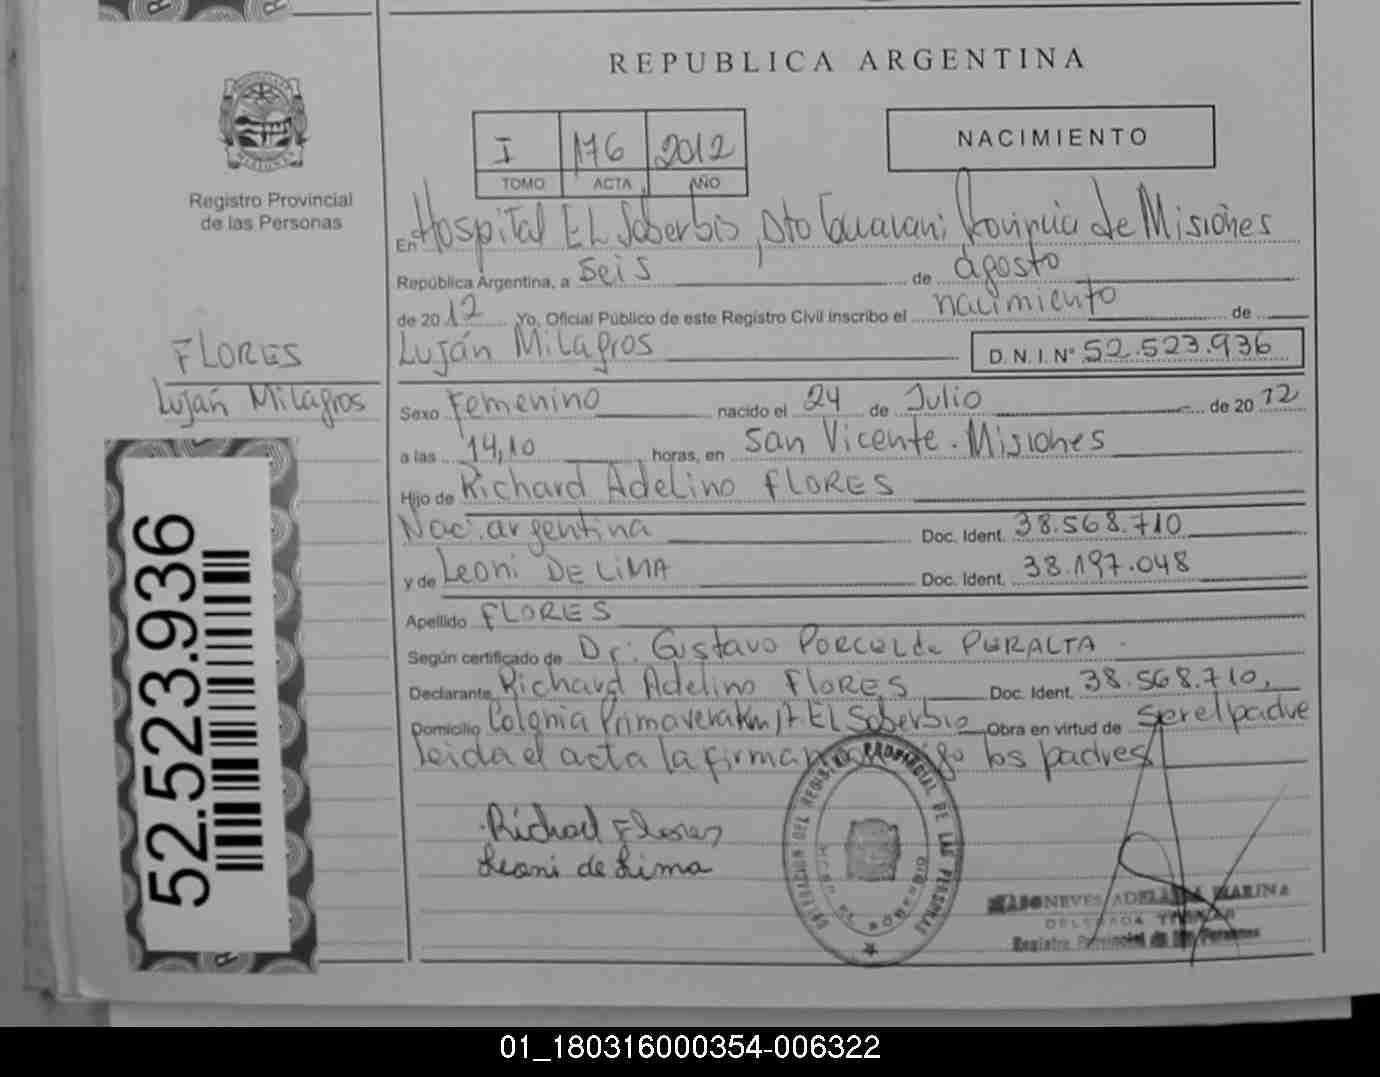 REPUBLICA ARGENTINA
I 176 2012
TOMO ACTA AÑO
NACIMIENTO
Registro Provincial
de las Personas
En Hospital EL Soberbio, Dto Guarani Provincia de Misiones
República Argentina, a seis de agosto
de 2012 Yo, Oficial Público de este Registro Civil inscribo el nacimiento de
Luján Milagros D.N.I.Nº 52.523.936
FLORES
Luján Milagros
Sexo Femenino nacido el 24 de Julio de 2012
a las 14,10 horas, en San Vicente. Misiones
Hijo de Richard Adelino FLORES
Nac. argentina Doc. Ident. 38.568.710
y de Leoni DE LIMA Doc. Ident. 38.197.048
Apellido FLORES
Según certificado de Dr: Gustavo PERALTA
Declarante Richard Adelino FLORES Doc. Ident. 38.568.710,
Domicilio Colonia Primavera Km 17 EL Soberbio Obra en virtud de ser el padre
Leida el acta la firman los padres
Richad Flores
Leoni de Lima
DEL REGISTRO PROVINCIAL DE LAS PERSONAS
EL SOBERBIO
ADELINA MARINA
DELEGADA TITULAR
Registro Provincial de las Personas
52.523.936
01_180316000354-006322